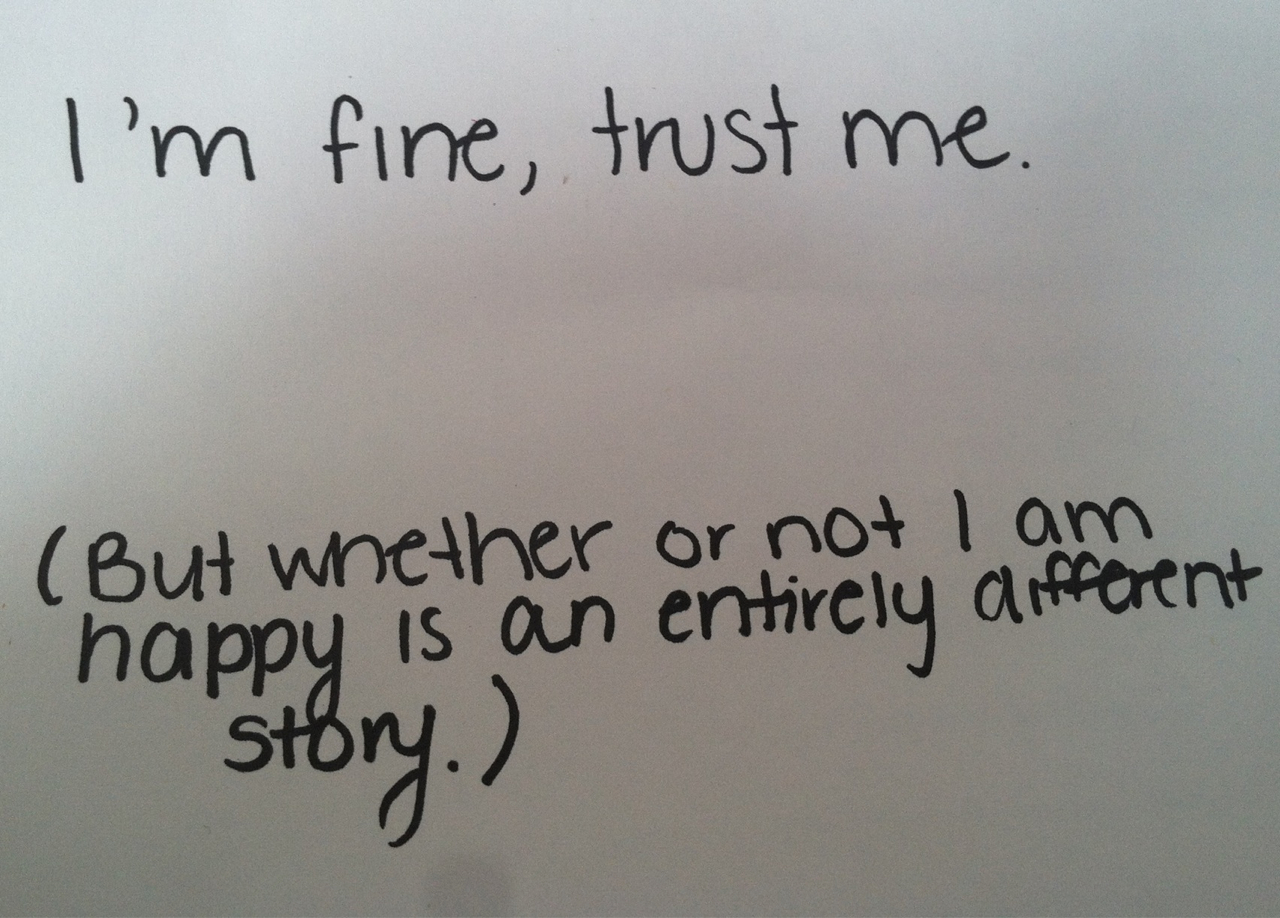 I'm fine, trust me.
(But whether or not I am
happy is an entirely different
story.)